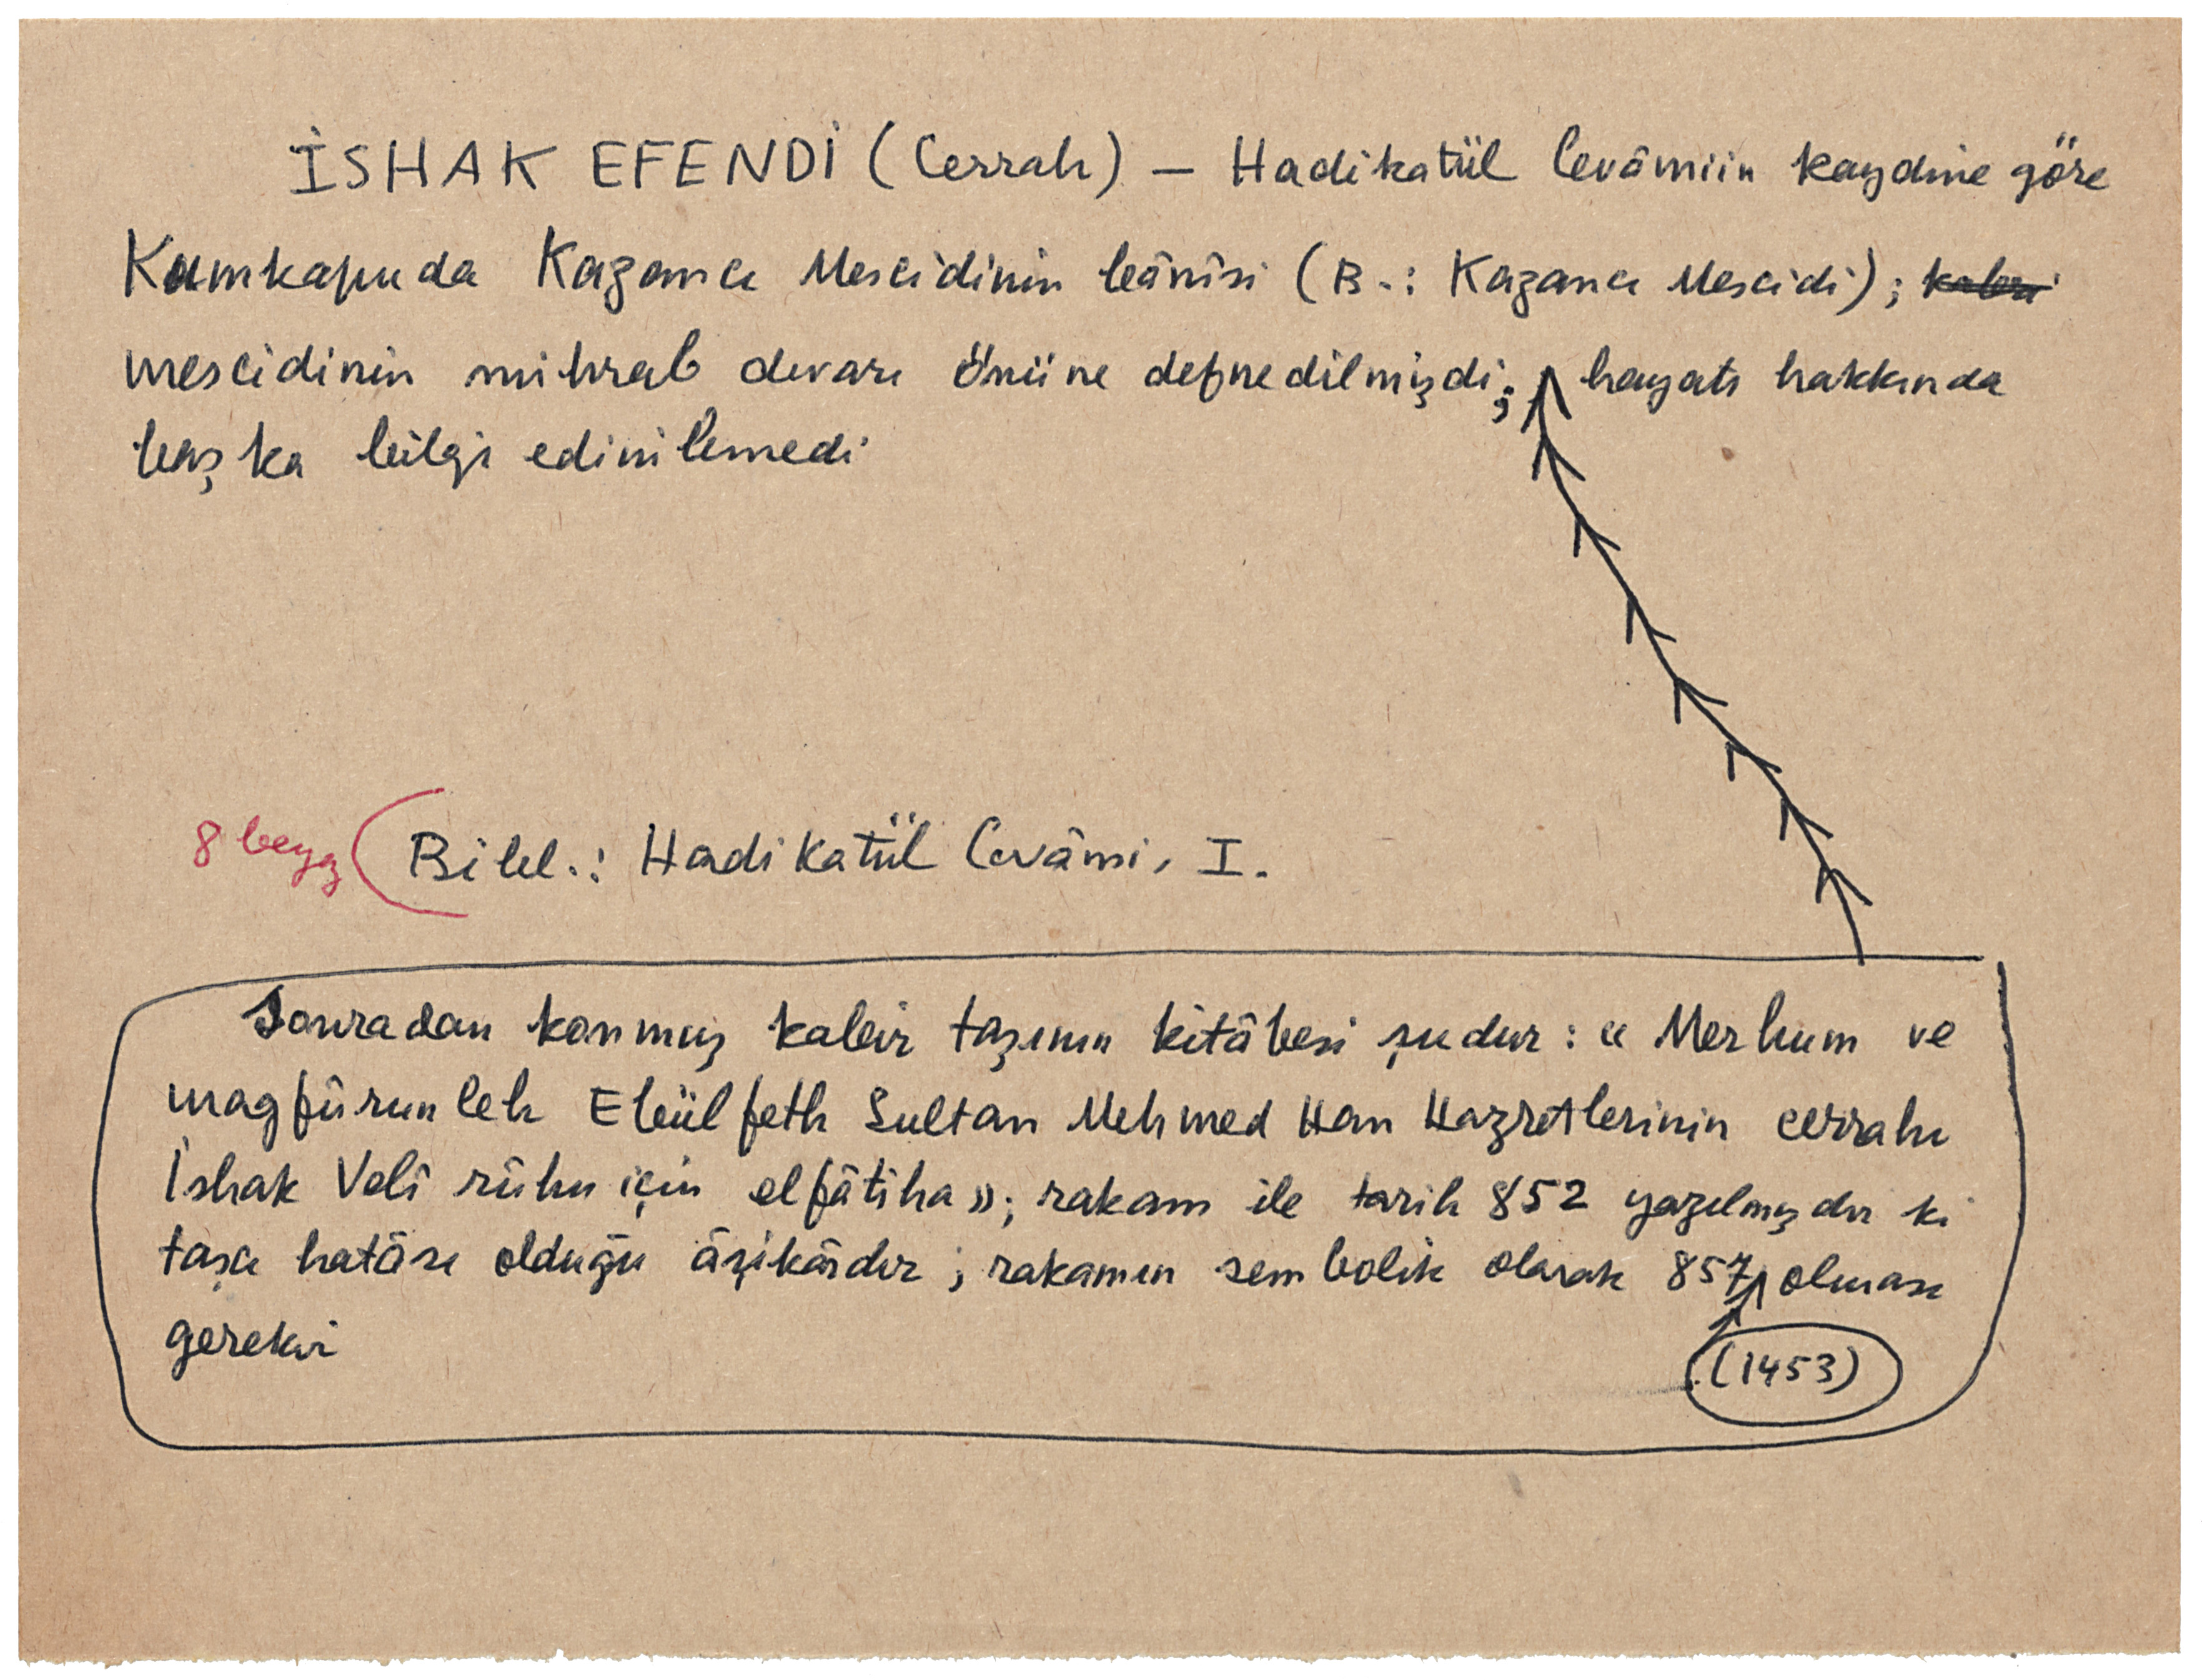 İSHAK EFENDİ (Cerrah) — Hadikatül Cevâmiin kaydine göre
Kumkapuda Kazancı Mescidinin bânîsi (B.: Kazancı Mescidi); kabri
mescidinin mihrab dıvarı önüne defnedilmişdi; hayatı hakkında
başka bilgi edinilemedi
8 beyz
Bibl.: Hadikatül Cevâmi, I.
Sonradan konmuş kabir taşının kitâbesi şudur: « Merhum ve
magfûrunleh Ebülfeth Sultan Mehmed Han Hazretlerinin cerrahı
İshak Velî rûhu için elfâtiha »; rakam ile tarih 852 yazılmışdır ki
taşcı hatâsı olduğu âşikârdır; rakamın sembolik olarak 857 olması
gerekir
(1453)